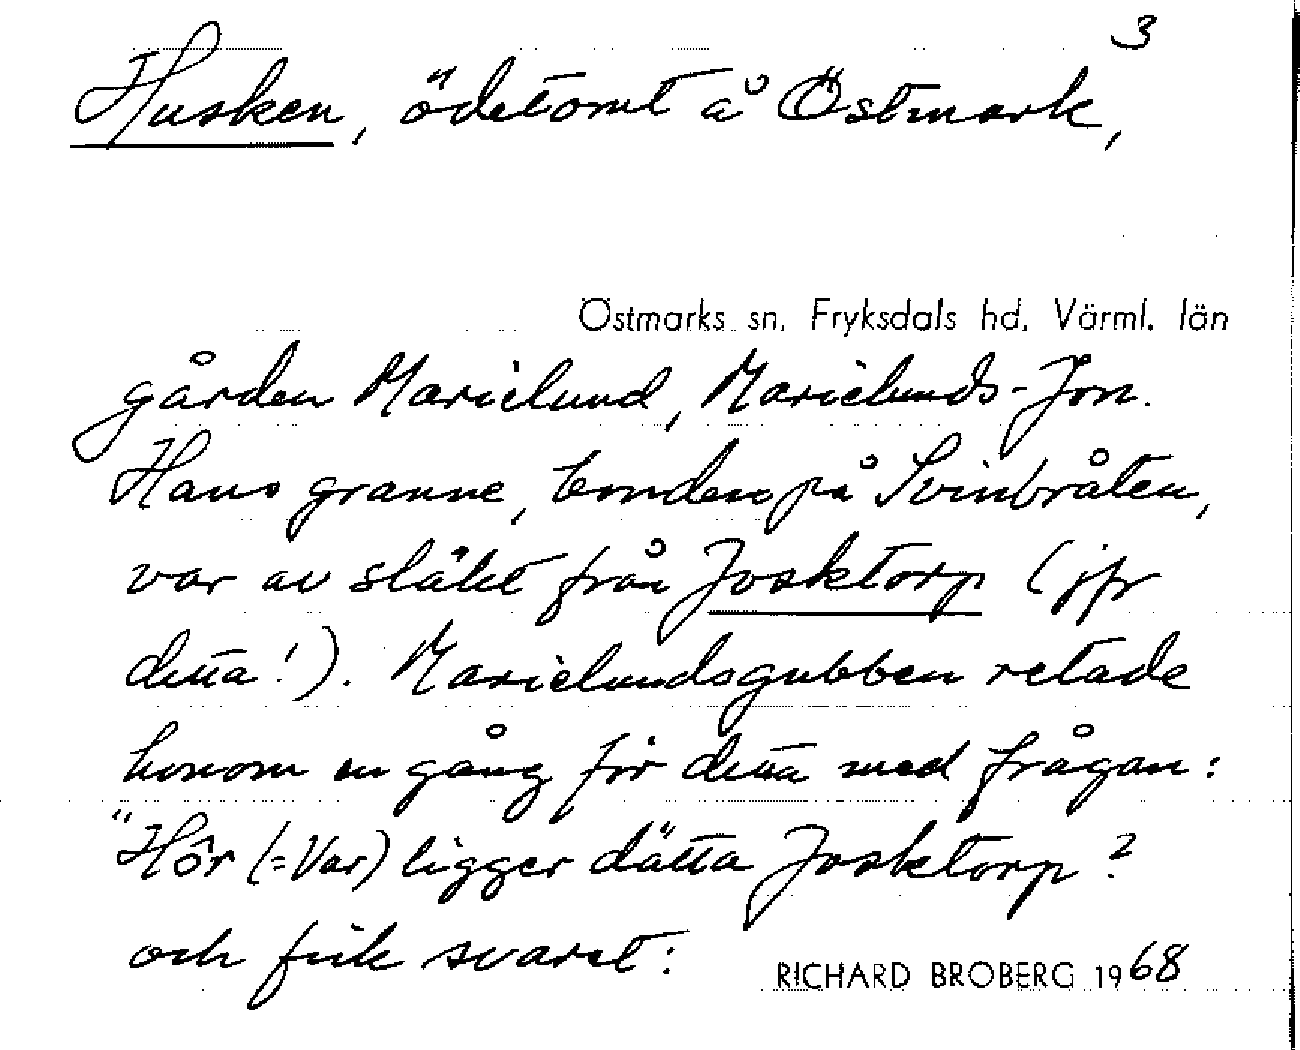 3
Husken, ödetomt å Östmark,
Östmarks sn. Fryksdals hd. Värml. län
gården Marielund, Marielunds-Jon.
Hans granne, bonden på Svinbråten,
var av släkt från Josktorp (jfr
detta!). Marielundsgubben retade
honom en gång för detta med frågan:
"Hôr (=Var) ligger dätta Josktorp?
och fick svaret:
RICHARD BROBERG 1968